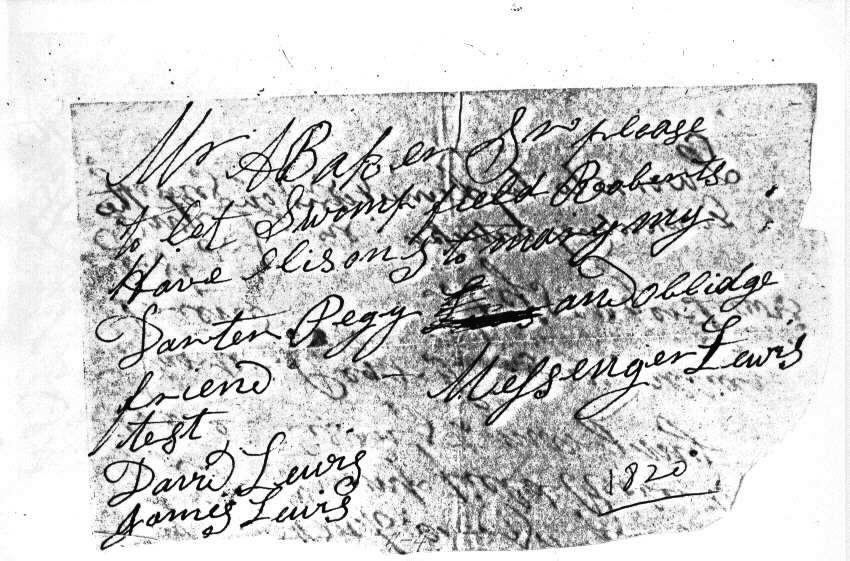 Mr A Baker Sir please
to let Swompfield Roberts
Have lisons to mary my
Dawter Pegy and oblidge
friend Messenger Lewis
test
David Lewis
James Lewis
1820